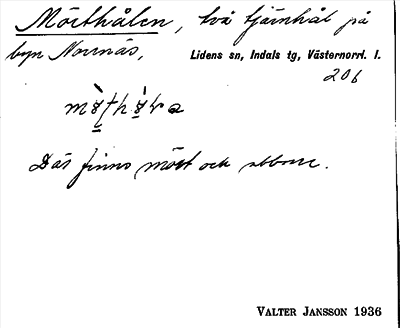 Mörthålen, två tjärnhål på
byn Norrnäs, Lidens sn, Indals tg, Västernorrl. l.
206
Där finns mört och abborre.
VALTER JANSSON 1936